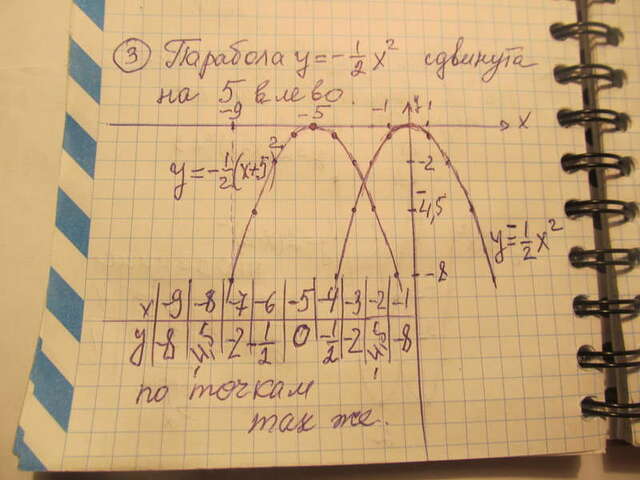 ③ Парабола y = -1/2 x² сдвинута
на 5 влево.
-9 -5 -1 1 x
y = -1/2(x+5)²
-2
-4,5
y = -1/2 x²
-8
x | -9 | -8 | -7 | -6 | -5 | -4 | -3 | -2 | -1
y | -8 | -4,5 | -2 | -1/2 | 0 | -1/2 | -2 | -4,5 | -8
по точкам
так же.